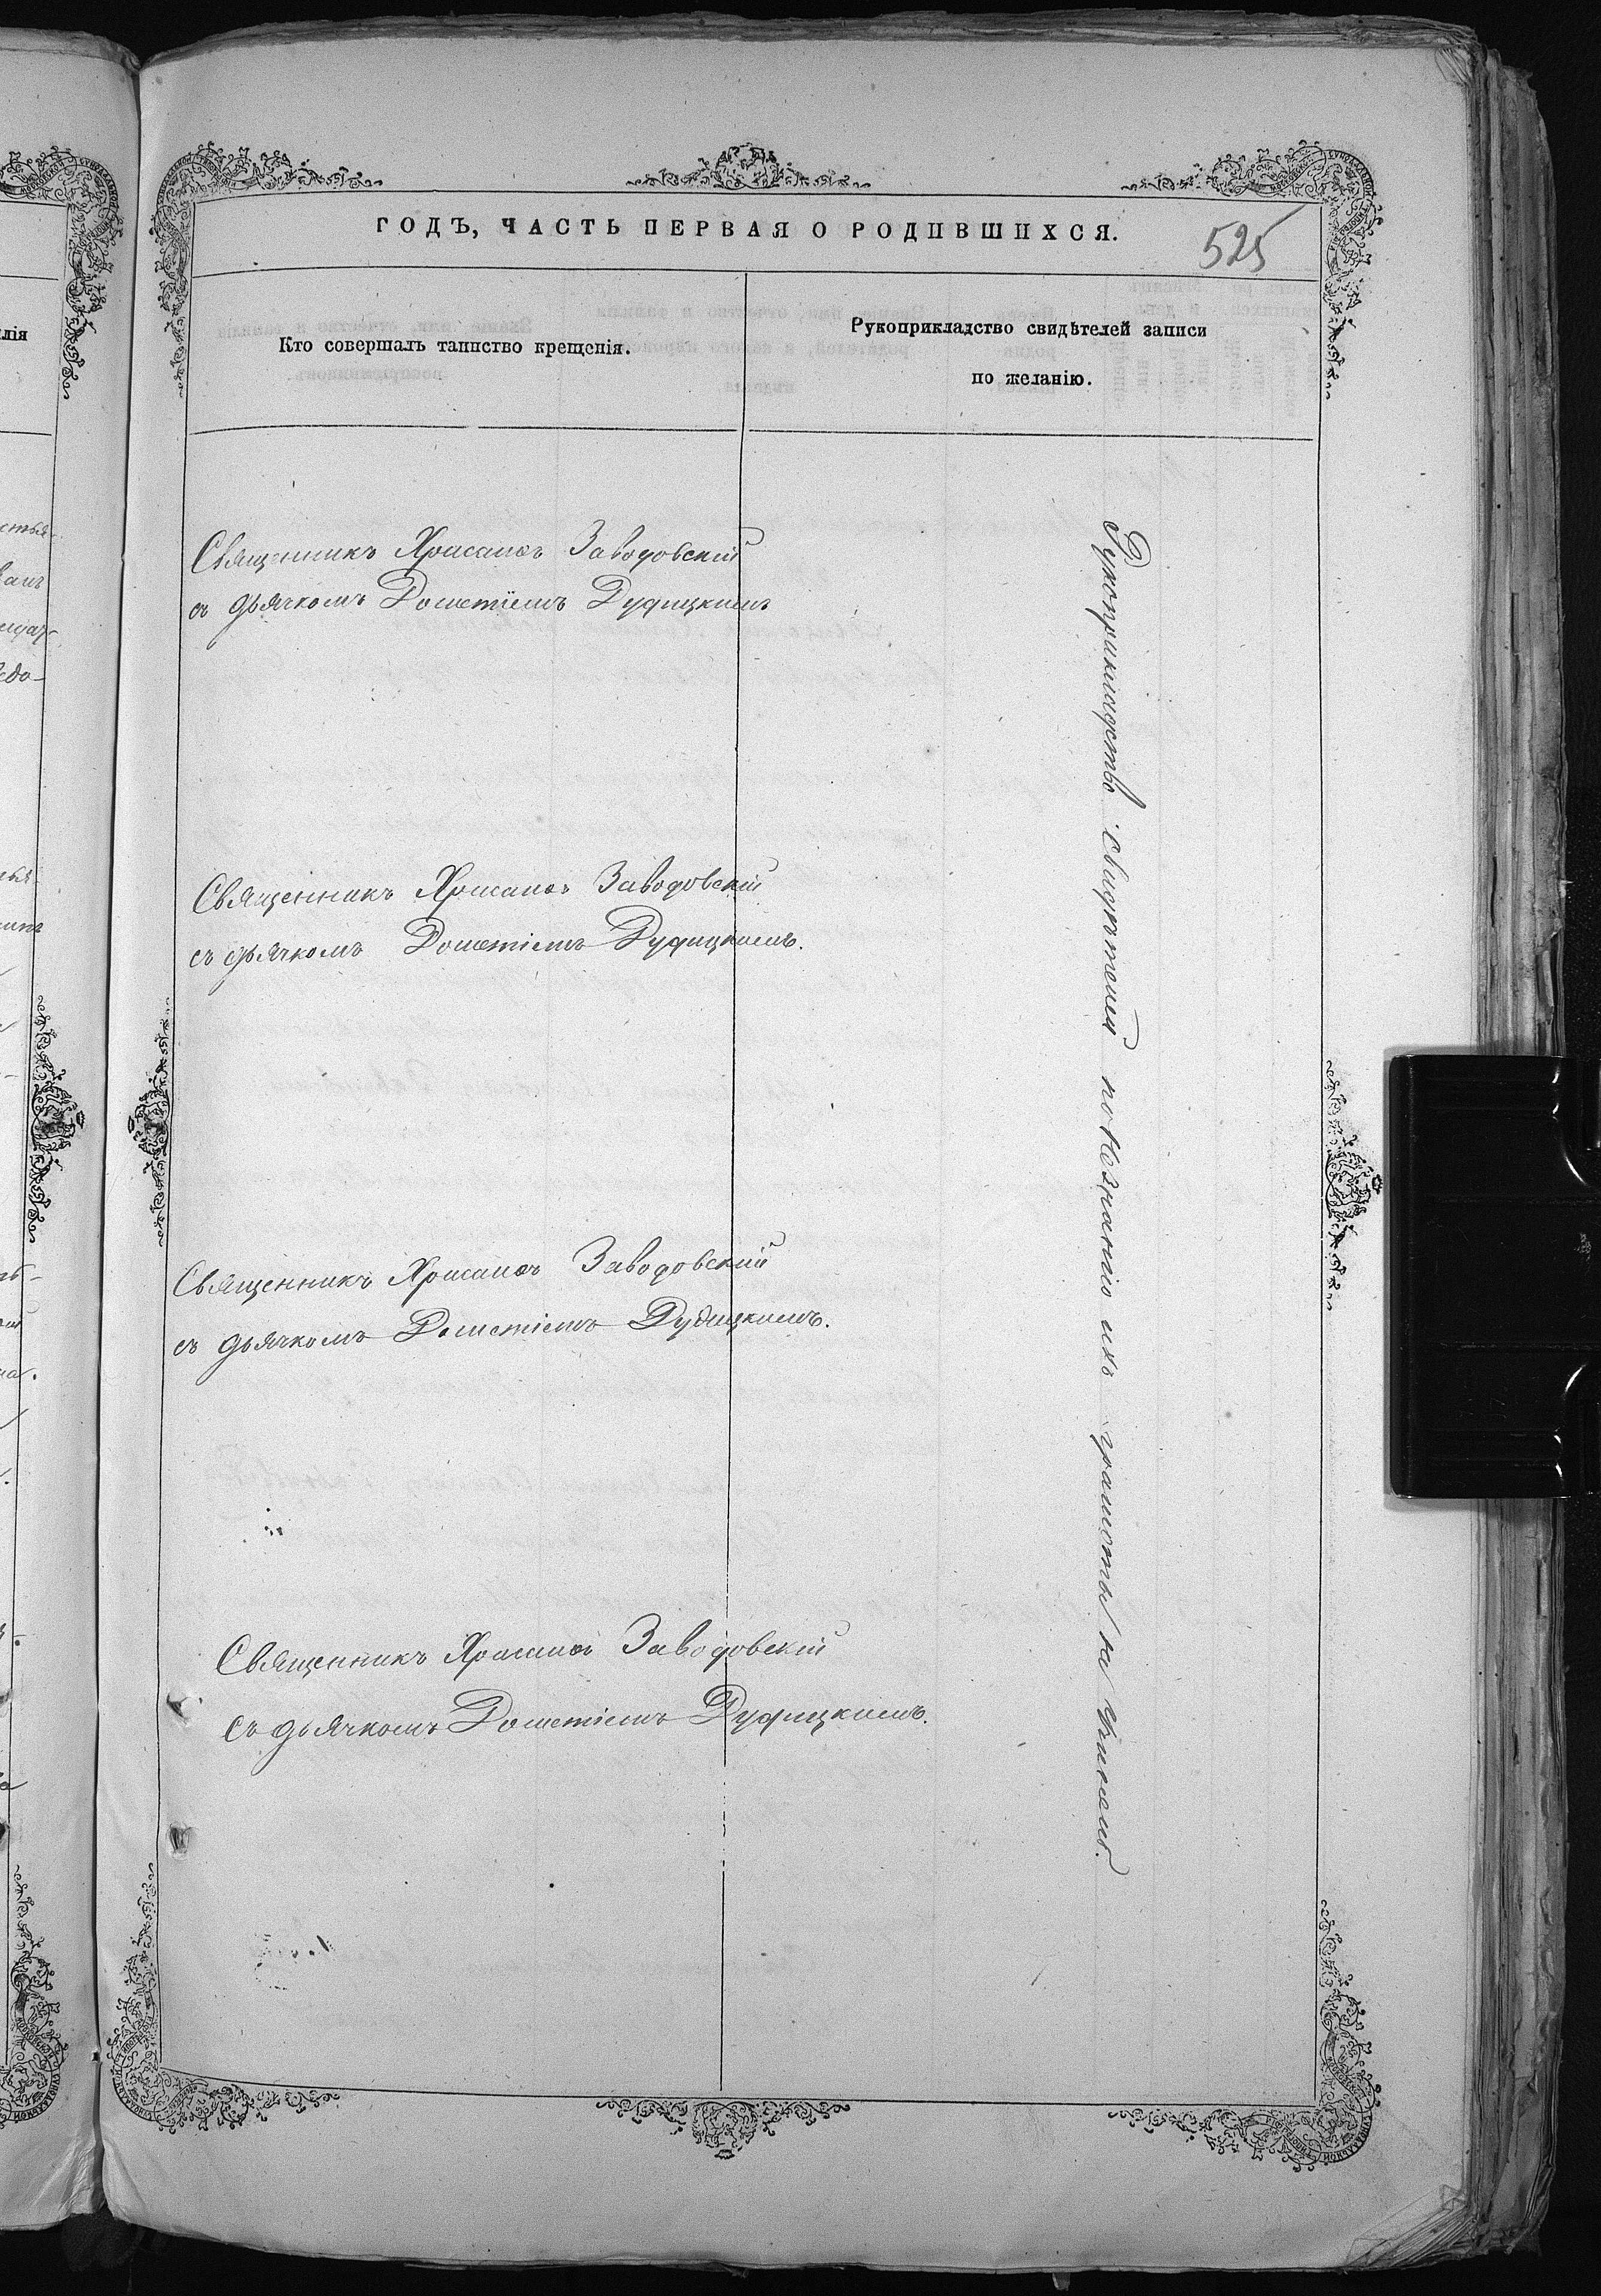 ГОДЪ, ЧАСТЬ ПЕРВАЯ О РОДИВШИХСЯ.
525
Кто совершалъ таинство крещенія.
Рукоприкладство свидѣтелей записи
по желанію.
Священникъ Хрисанѳъ Заводовскій
съ дьячкомъ Дометіемъ Дудицкимъ
Священникъ Хрисанѳъ Заводовскій
съ дьячкомъ Дометіемъ Дудицкимъ.
Священникъ Хрисанѳъ Заводовскій
съ дьячкомъ Дометіемъ Дудицкимъ.
Священникъ Хрисанѳъ Заводовскій
съ дьячкомъ Дометіемъ Дудицкимъ.
Рукоприкладство свидѣтелей по незнанію ихъ грамоты не чинено.